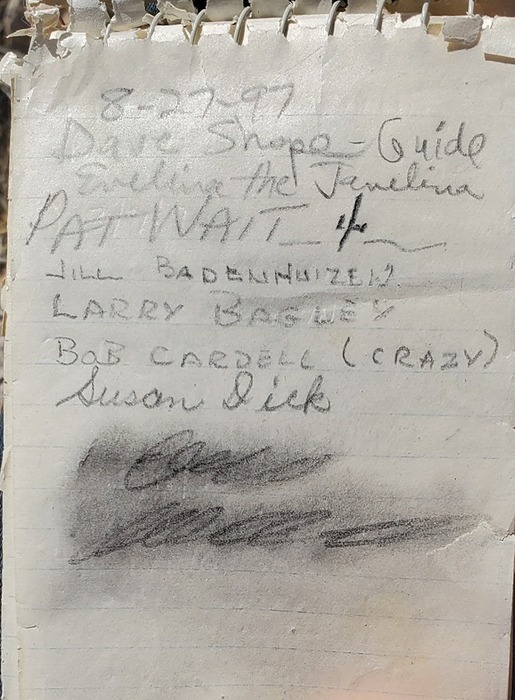 8-27-97
Dave Shope - Guide
Evelina the Javelina
PAT WAIT _ 4 _
JILL BADENHUIZEN
LARRY BAGLEY
BOB CARDELL (CRAZY)
Susan Dick